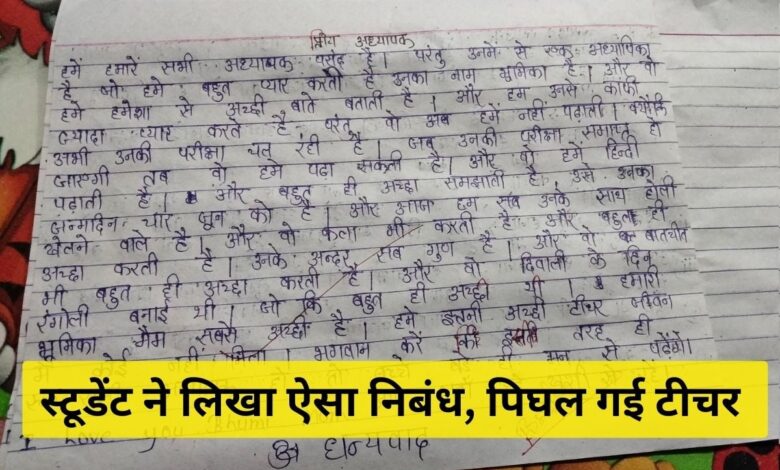 प्रिय अध्यापक
हमें हमारें सभी अध्यापक पसंद है। परंतु उनमें से एक अध्यापिका
है जो हमें बहुत प्यार करती है उनका नाम भुमिका है। और वो
हमें हमेशा से अच्छी बाते बताती है। और हम उनसे काफी
ज्यादा प्यार करते है परंतु वो अब हमें नहीं पढ़ाती। क्योंकि
अभी उनकी परीक्षा चल रही है। जब उनकी परीक्षा समाप्त हो
जाएगी तब वो हमे पढा सकती है। और वो हमें हिन्दी
पढ़ाती है। और बहुत ही अच्छा समझाती है। उसे उनका
जन्मदिन चार जून को है। और आज हम सब उनके साथ होली
खेलने वाले है। और वो कला भी करती है और बहुत ही
अच्छा करती है। उनके अन्दर सब गुण है। और वो बातचीत
भी बहुत ही अच्छा करती है। और वो दिवाली के दिन
रंगोली बनाई थी। जो कि बहुत ही अच्छी थी। हमारी
भूमिका मैम सबसे अच्छी है। हमे इतनी अच्छी टीचर जीवन
में कोई नहीं मिला। भगवान करें कि इसी तरह ही
मन से पढ़ेंगे।
स्टूडेंट ने लिखा ऐसा निबंध, पिघल गई टीचर
I love you Bhumi
धन्यवाद